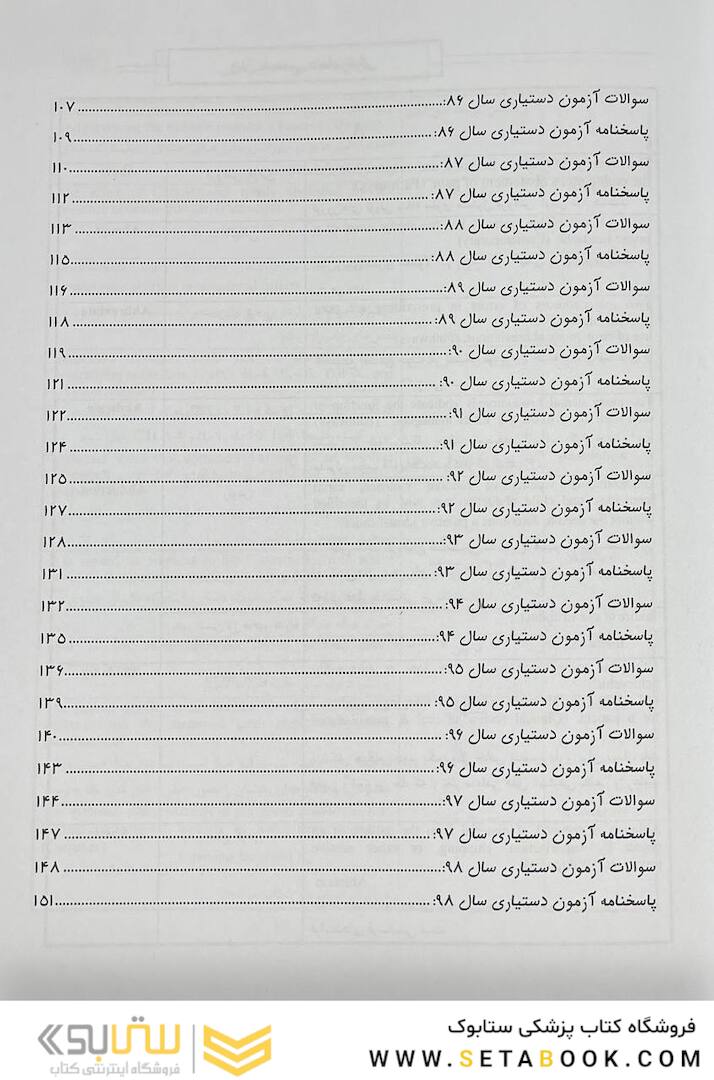 سوالات آزمون دستیاری سال ۸۶:........................ ۱۰۷
پاسخنامه آزمون دستیاری سال ۸۶:........................ ۱۰۹
سوالات آزمون دستیاری سال ۸۷:........................ ۱۱۰
پاسخنامه آزمون دستیاری سال ۸۷:........................ ۱۱۲
سوالات آزمون دستیاری سال ۸۸:........................ ۱۱۳
پاسخنامه آزمون دستیاری سال ۸۸:........................ ۱۱۵
سوالات آزمون دستیاری سال ۸۹:........................ ۱۱۶
پاسخنامه آزمون دستیاری سال ۸۹:........................ ۱۱۸
سوالات آزمون دستیاری سال ۹۰:........................ ۱۱۹
پاسخنامه آزمون دستیاری سال ۹۰:........................ ۱۲۱
سوالات آزمون دستیاری سال ۹۱:........................ ۱۲۲
پاسخنامه آزمون دستیاری سال ۹۱:........................ ۱۲۴
سوالات آزمون دستیاری سال ۹۲:........................ ۱۲۵
پاسخنامه آزمون دستیاری سال ۹۲:........................ ۱۲۷
سوالات آزمون دستیاری سال ۹۳:........................ ۱۲۸
پاسخنامه آزمون دستیاری سال ۹۳:........................ ۱۳۱
سوالات آزمون دستیاری سال ۹۴:........................ ۱۳۲
پاسخنامه آزمون دستیاری سال ۹۴:........................ ۱۳۵
سوالات آزمون دستیاری سال ۹۵:........................ ۱۳۶
پاسخنامه آزمون دستیاری سال ۹۵:........................ ۱۳۹
سوالات آزمون دستیاری سال ۹۶:........................ ۱۴۰
پاسخنامه آزمون دستیاری سال ۹۶:........................ ۱۴۳
سوالات آزمون دستیاری سال ۹۷:........................ ۱۴۴
پاسخنامه آزمون دستیاری سال ۹۷:........................ ۱۴۷
سوالات آزمون دستیاری سال ۹۸:........................ ۱۴۸
پاسخنامه آزمون دستیاری سال ۹۸:........................ ۱۵۱
فروشگاه کتاب پزشکی ستابوک
WWW.SETABOOK.COM
ستابوک
فروشگاه اینترنتی کتاب